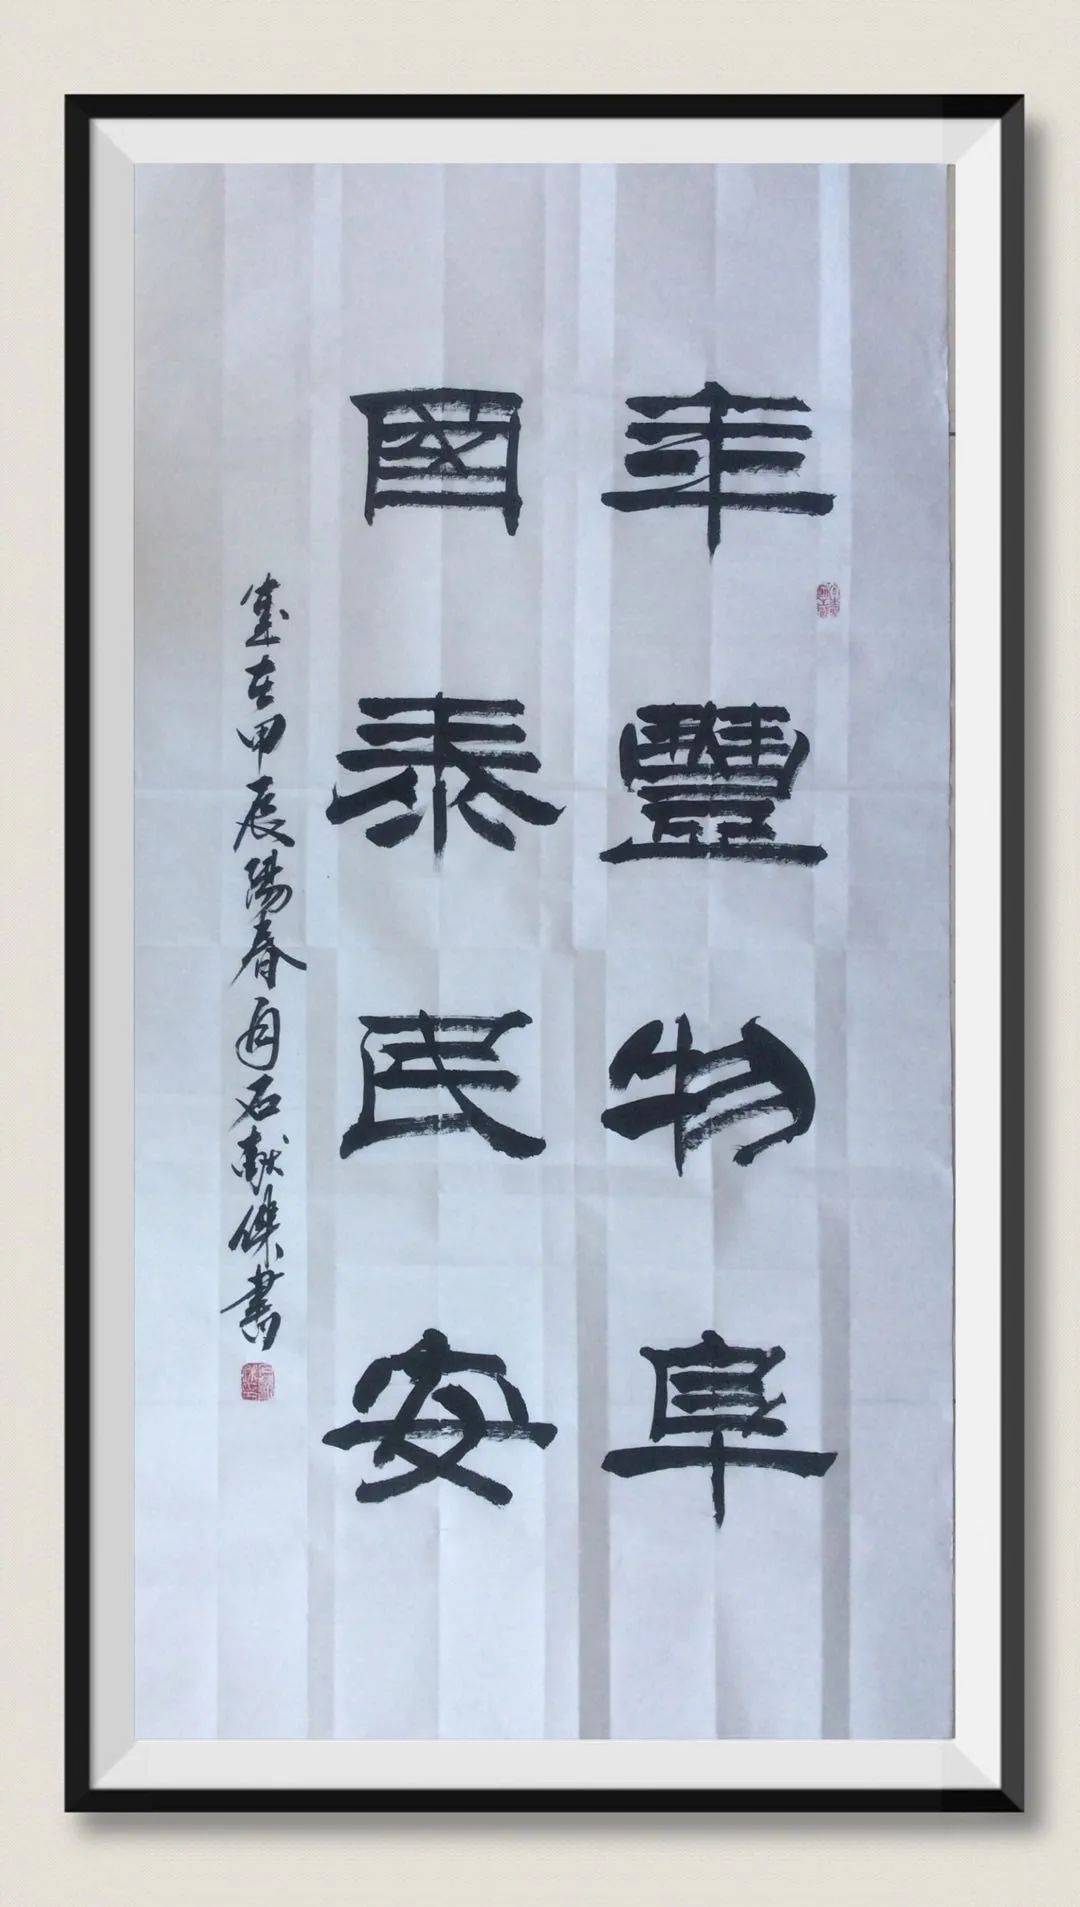 年豐物阜
國泰民安
歲在甲辰陽春月石獻傑書